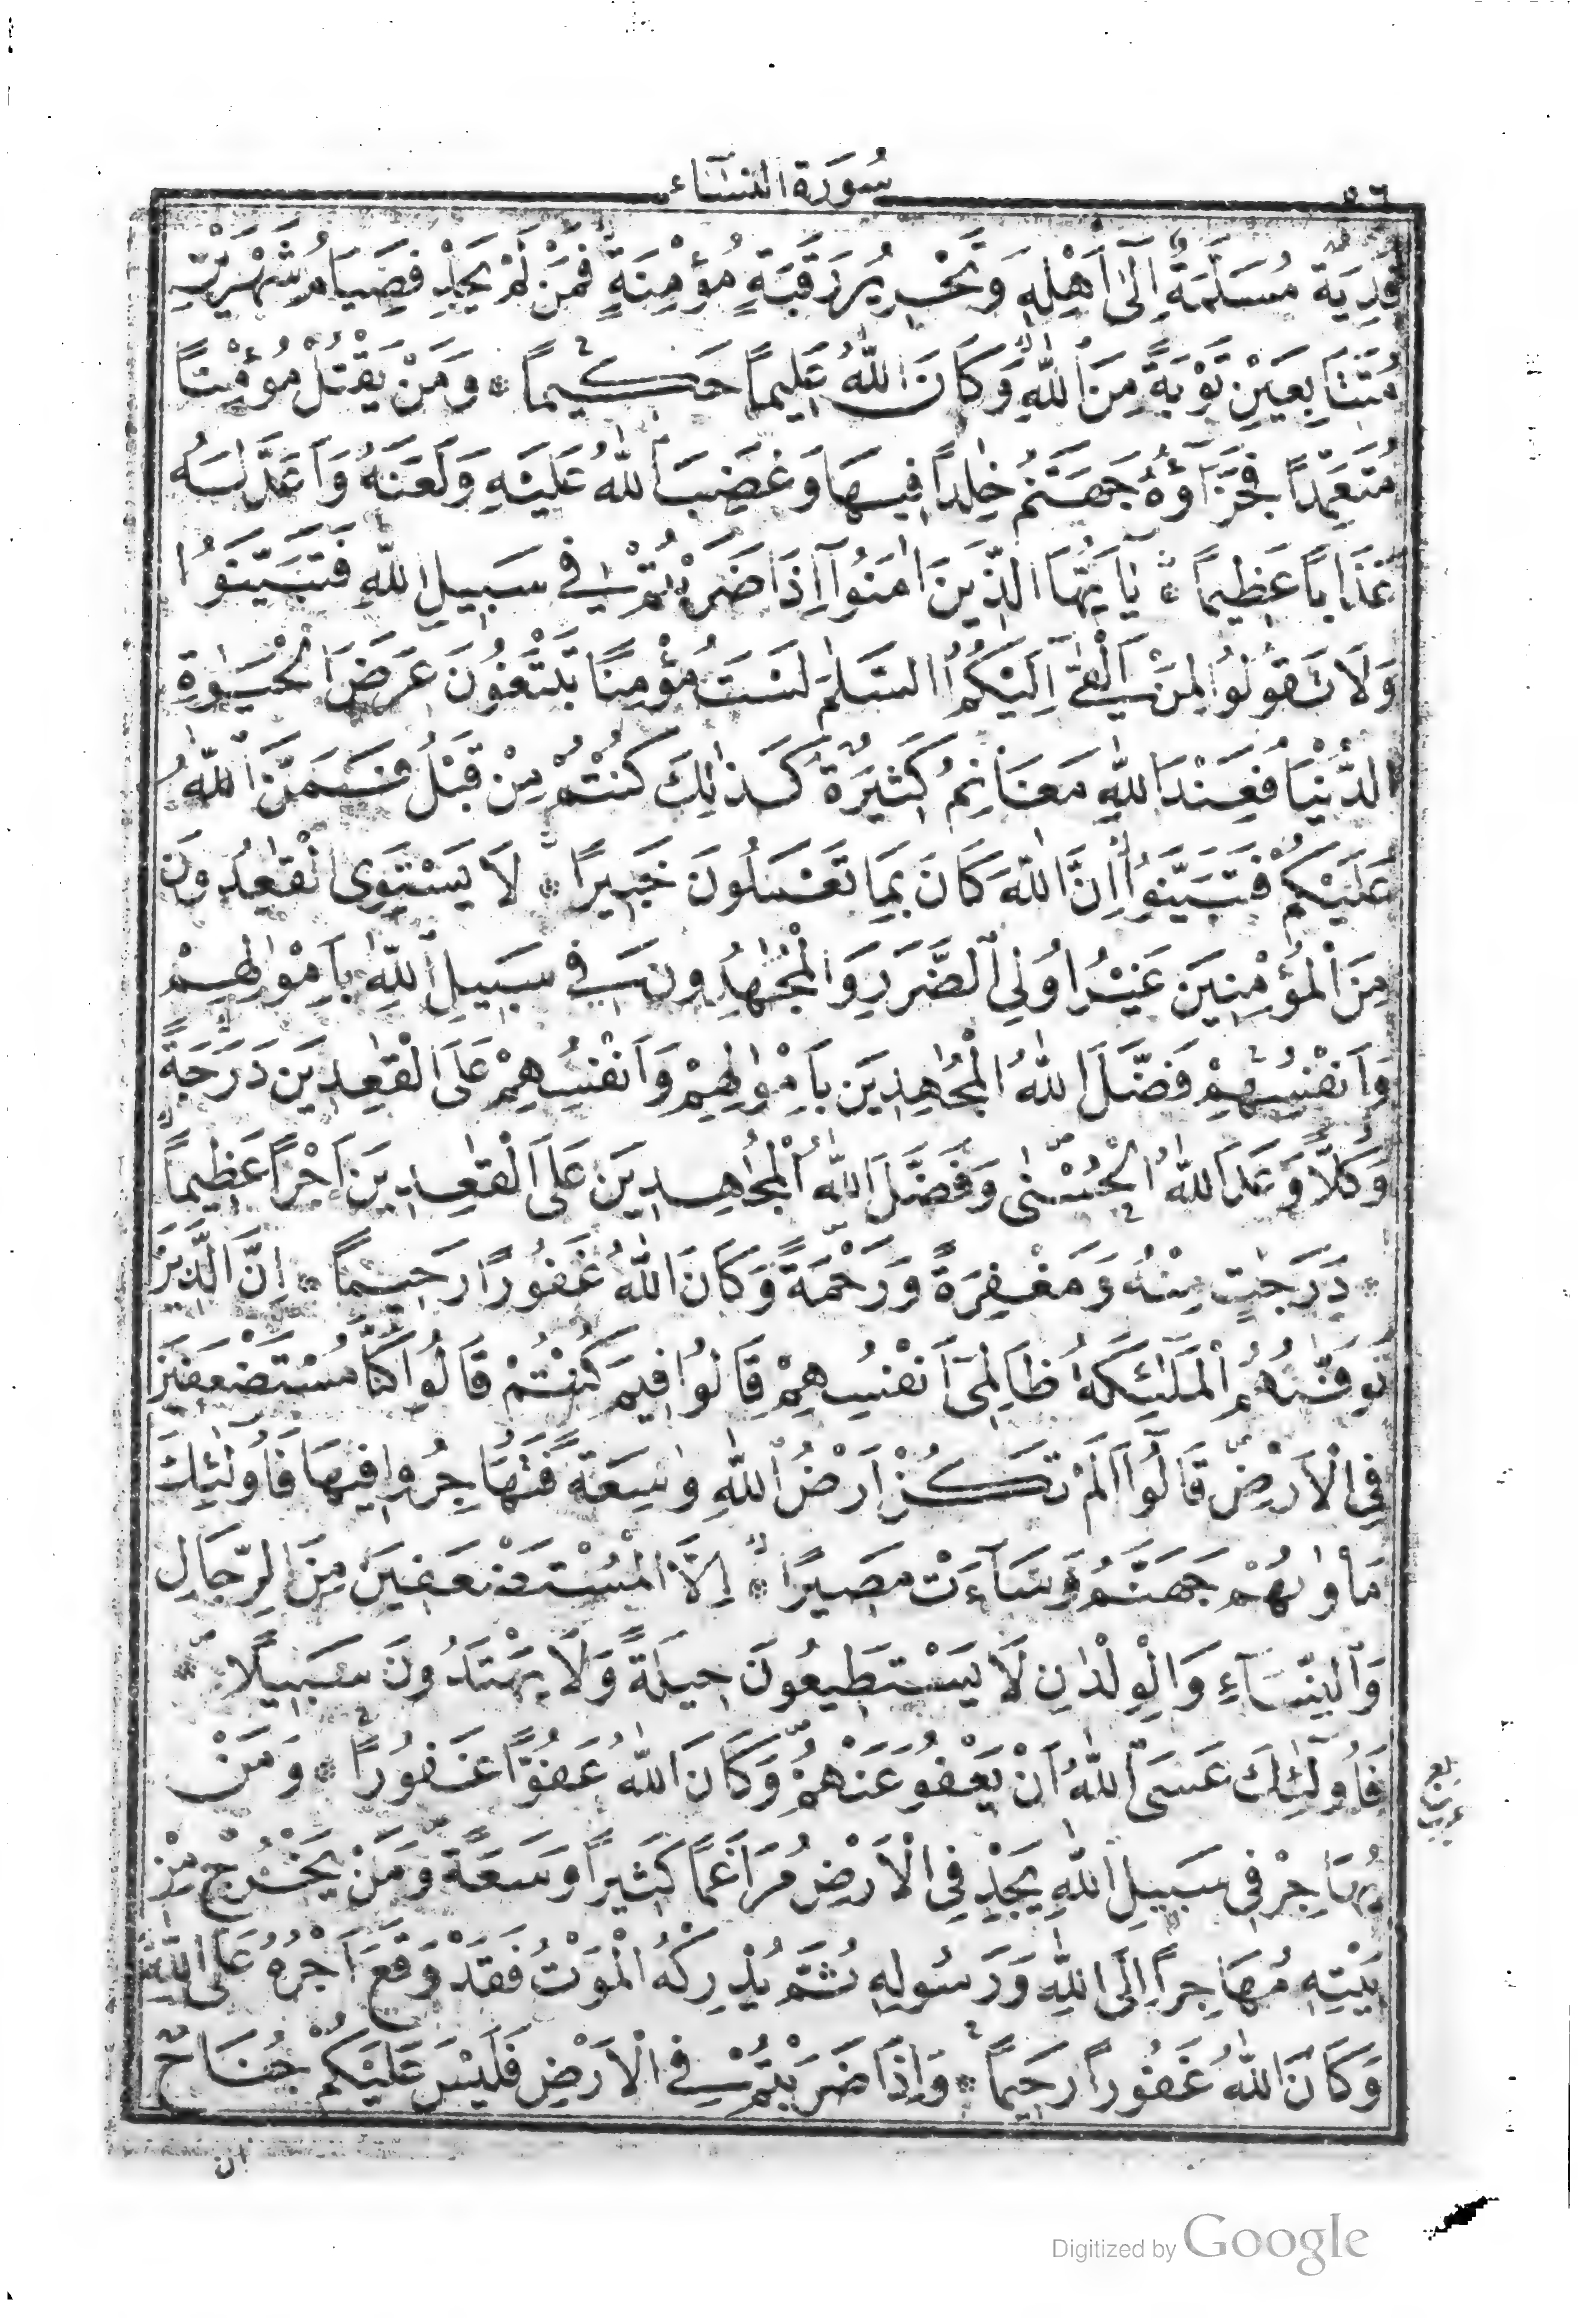 سُورَة النسَاء
٥٦
فَدِيَةٌ مُسَلَّمَةٌ اِلٰى اَهْلِهِ وَتَحْرِيرُ رَقَبَةٍ مُؤْمِنَةٍ فَمَنْ لَمْ يَجِدْ فَصِيَامُ شَهْرَيْنِ
مُتَتَابِعَيْنِ تَوْبَةً مِنَ اللّٰهِ وَكَانَ اللّٰهُ عَلِيماً حَكِيماً * وَمَنْ يَقْتُلْ مُؤْمِنًا
مُتَعَمِّدًا فَجَزَآؤُهُ جَهَنَّمُ خٰلِداً فِيهَا وَغَضِبَ اللّٰهُ عَلَيْهِ وَلَعَنَهُ وَاَعَدَّ لَهُ
عَذَاباً عَظِيماً * يَآ اَيُّهَا الَّذِينَ اٰمَنُوآ اِذَا ضَرَبْتُمْ فِي سَبِيلِ اللّٰهِ فَتَبَيَّنُوا
وَلَا تَقُولُوا لِمَنْ اَلْقٰٓى اِلَيْكُمُ السَّلٰمَ لَسْتَ مُؤْمِنًا تَبْتَغُونَ عَرَضَ الْحَيٰوةِ
الدُّنْيَا فَعِنْدَ اللّٰهِ مَغَانِمُ كَثِيرَةٌ كَذٰلِكَ كُنْتُمْ مِنْ قَبْلُ فَمَنَّ اللّٰهُ
عَلَيْكُمْ فَتَبَيَّنُوآ اِنَّ اللّٰهَ كَانَ بِمَا تَعْمَلُونَ خَبِيرًا * لَا يَسْتَوِى الْقٰعِدُونَ
مِنَ الْمُؤْمِنِينَ غَيْرُ اُولِي الضَّرَرِ وَالْمُجٰهِدُونَ فِي سَبِيلِ اللّٰهِ بِاَمْوٰلِهِمْ
وَاَنْفُسِهِمْ فَضَّلَ اللّٰهُ الْمُجٰهِدِيَن بِاَمْوٰلِهِمْ وَاَنْفُسِهِمْ عَلَى الْقٰعِدِينَ دَرَجَةً
وَكُلًّا وَعَدَ اللّٰهُ الْحُسْنٰى وَفَضَّلَ اللّٰهُ الْمُجٰهِدِيَن عَلَى الْقٰعِدِينَ اَجْرًا عَظِيماً
* دَرَجٰتٍ مِنْهُ وَمَغْفِرَةً وَرَحْمَةً وَكَانَ اللّٰهُ غَفُورًا رَحِيماً * اِنَّ الَّذِينَ
تَوَفّٰىهُمُ الْمَلٰٓئِكَةُ ظَالِمِىٓ اَنْفُسِهِمْ قَالُوا فِيمَ كُنْتُمْ قَالُوا كُنَّا مُسْتَضْعَفِينَ
فِي الْاَرْضِ قَالُوآ اَلَمْ تَكُنْ اَرْضُ اللّٰهِ وٰسِعَةً فَتُهَاجِرُوا فِيهَا فَاُولٰٓئِكَ
مَاْوٰىهُمْ جَهَنَّمُ وَسَآءَتْ مَصِيرًا * اِلَّا الْمُسْتَضْعَفِينَ مِنَ الرِّجَالِ
وَالنِّسَآءِ وَالْوِلْدٰنِ لَا يَسْتَطِيعُونَ حِيلَةً وَلَا يَهْتَدُونَ سَبِيلًا *
فَاُولٰٓئِكَ عَسَى اللّٰهُ اَنْ يَعْفُوَ عَنْهُمْ وَكَانَ اللّٰهُ عَفُوًّا غَفُورًا * وَمَنْ
يُهَاجِرْ فِي سَبِيلِ اللّٰهِ يَجِدْ فِي الْاَرْضِ مُرَاغَمًا كَثِيرًا وَسَعَةً وَمَنْ يَخْرُجْ مِنْ
بَيْتِهِ مُهَاجِراً اِلَى اللّٰهِ وَرَسُولِهِ ثُمَّ يُدْرِكْهُ الْمَوْتُ فَقَدْ وَقَعَ اَجْرُهُ عَلَى اللّٰهِ
وَكَانَ اللّٰهُ غَفُورًا رَحِيماً * وَاِذَا ضَرَبْتُمْ فِي الْاَرْضِ فَلَيْسَ عَلَيْكُمْ جُنَاحٌ
ان
Digitized by Google